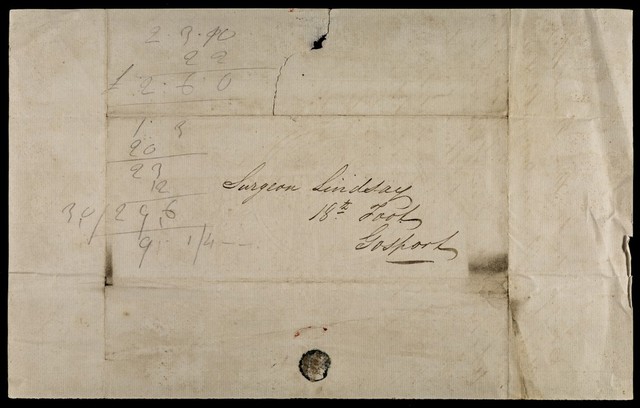 2 . 3 . 10
2 2
£ 2 . 6 . 0
1 . 3
20
23
12
30/ 29,6
9 . 1/4 --
Surgeon Lindsay
18th Foot
Gosport